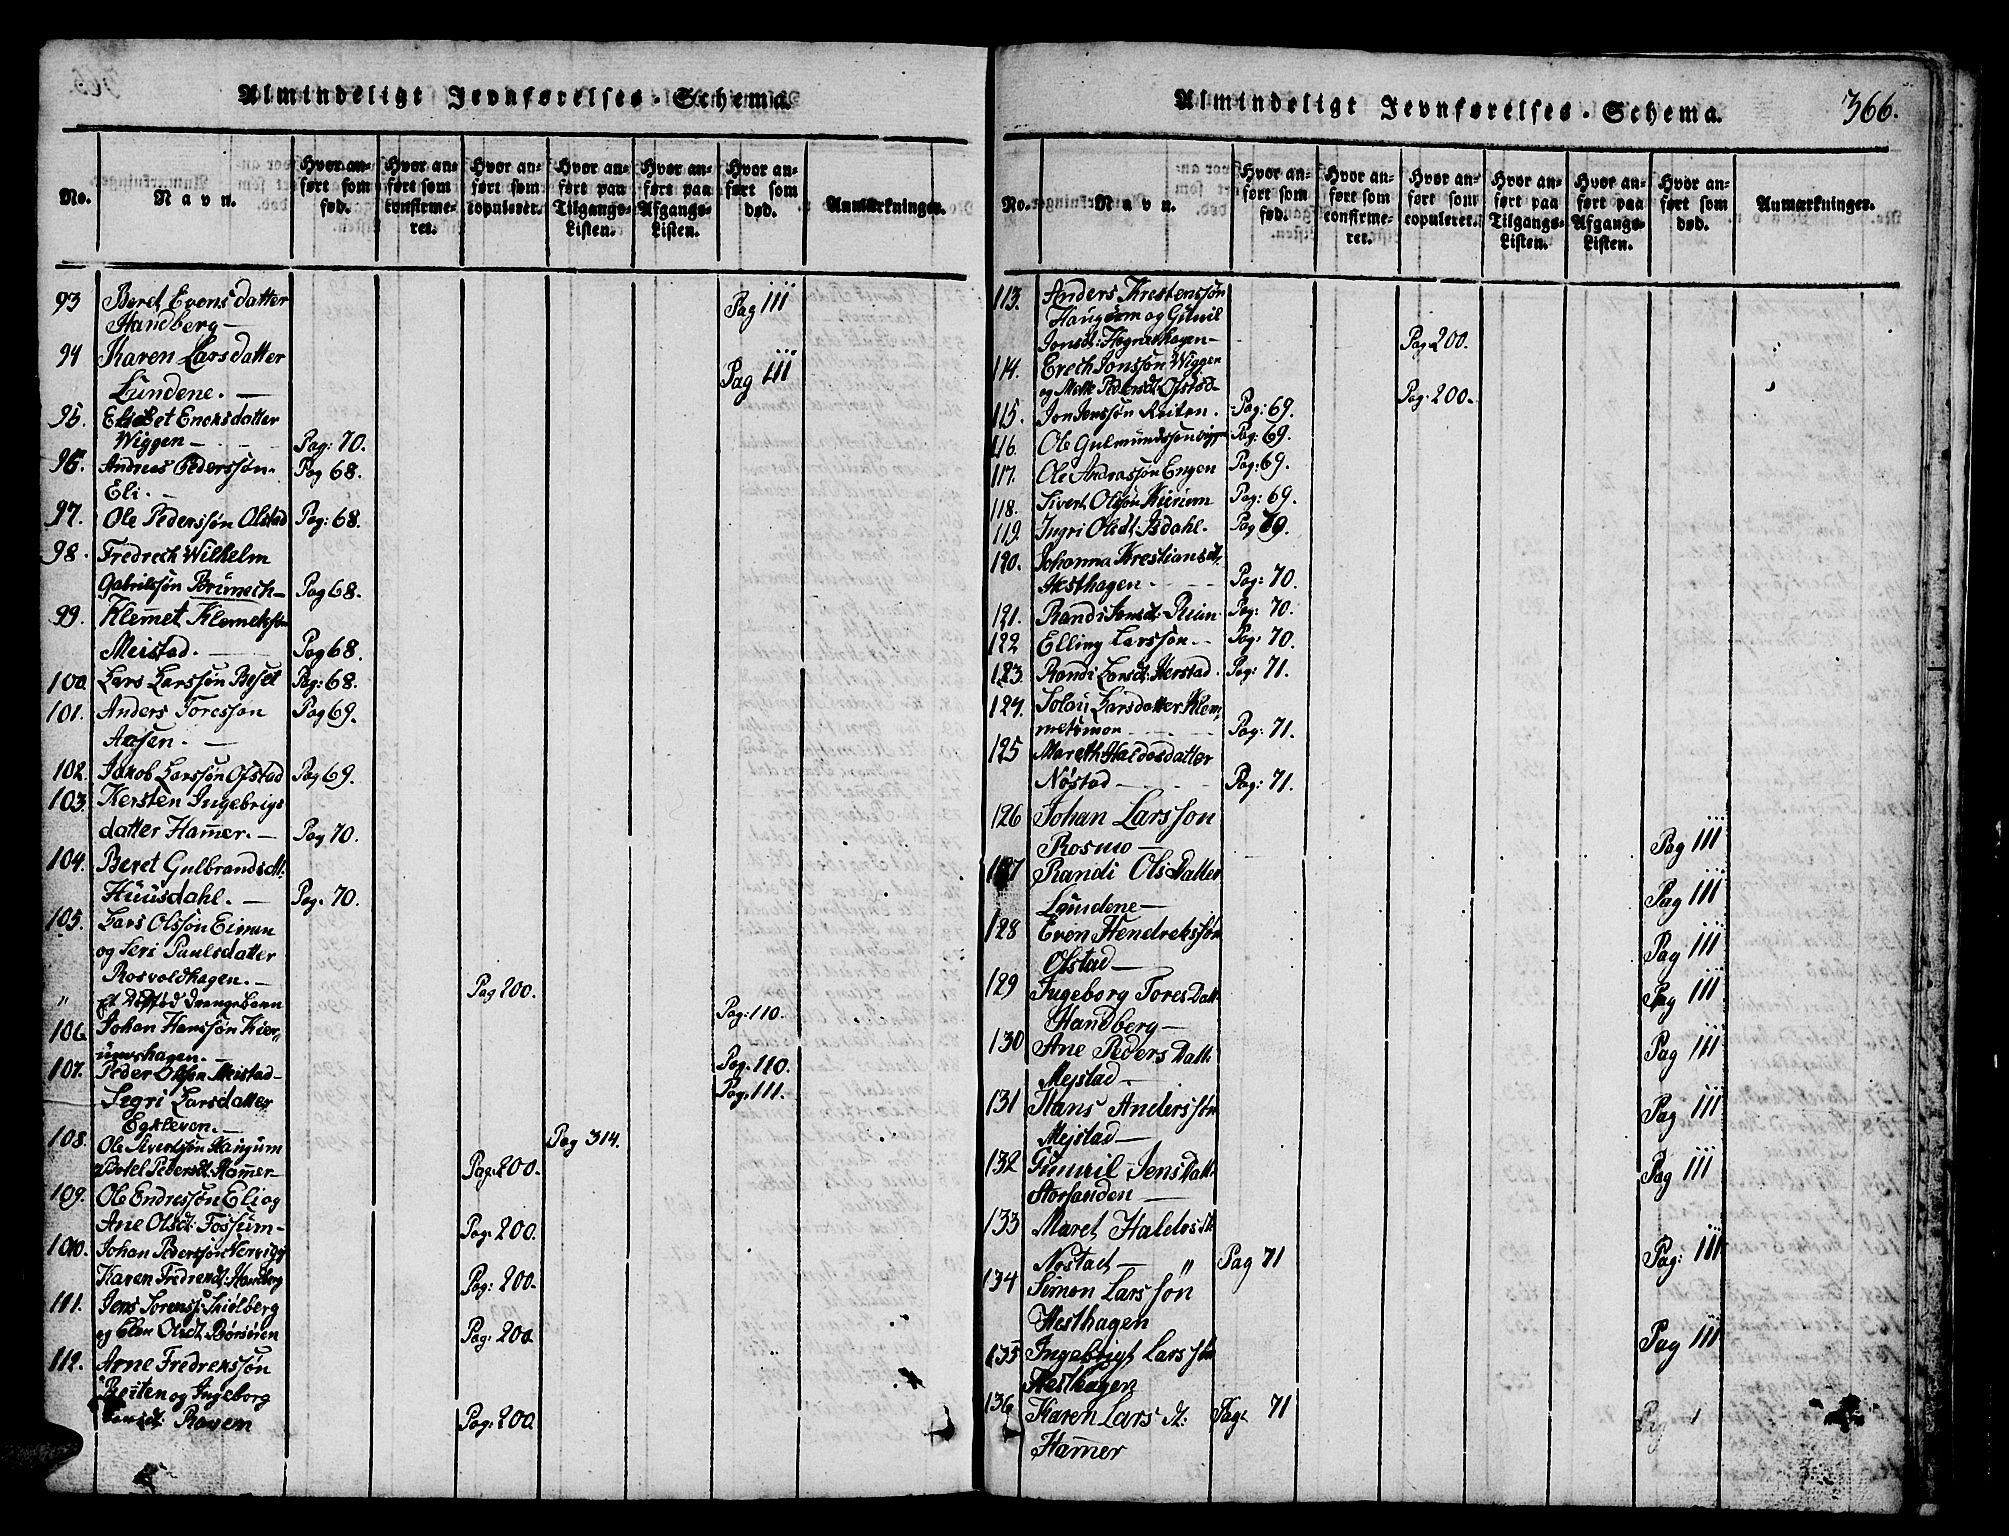 Almindeligt Jevnførelses-Schema.
No. Navn. Hvor anført som fød. Hvor anført som confirmeret. Hvor anført som copuleret. Hvor anført paa Tilgangs-Listen. Hvor anført paa Afgangs-Listen. Hvor anført som død. Anmærkninger.
93 Beret Evensdatter
Handberg — Pag 111
94 Karen Larsdatter
Lundene. — Pag 111
95. Enoksdatter
Wiggen — Pag: 70.
96. Andreas Pederssøn Pag 68.
Eli. —
97. Ole Pederssøn Olstad Pag: 68.
98. Fredrech Wilhelm
Gabrielssøn Brümech — Pag 68.
99. Klemet Klemetssøn
Meistad. — Pag 68.
100 Lars Larssøn Beset Pag: 68.
101. Anders Toressøn Pag 69.
Aasen. —
102. Jakob Larssøn Ofstad Pag 69.
103. Kersten Ingebrigs
datter Ham̅er. — Pag 70.
104. Beret Gulbrandsdt.
Huusdahl. — Pag. 70.
105. Lars Olssøn Eimun
og Seri Paulsdatter
Rosvoldhagen. — Pag 200.
" et dødfød drængebarn Pag: 110.
106. Johan Hanssøn Kier-
umshagen. — Pag. 110.
107. Peder Olssøn Meistad — Pag. 111.
Segri Larsdatter
Egkleven. — Pag 314.
108. Ole Sivertssøn Haugum
Pedersdt. Ham̅er — Pag. 200.
109. Ole Endressøn Eli og
Ane Olsdt: Fossum — Pag: 200.
Johan Pederssøn
Karen Handberg Pag: 200.
111. Jens Sørenss: Skiølberg
og Elen Olsdt. Børsøien Pag: 200
112. Arne Fredrekssøn
Reiten og Ingeborg
Ravem Pag: 200
Almindeligt Jevnførelses-Schema. 366.
No. Navn. Hvor anført som fød. Hvor anført som confirmeret. Hvor anført som copuleret. Hvor anført paa Tilgangs-Listen. Hvor anført paa Afgangs-Listen. Hvor anført som død. Anmærkninger.
113. Anders Krestenssøn
Haugum og Gunil
Jonsdt: Høgneshagen — Pag 200.
114. Erech Jonssøn Wiggen
og Pedersdt: Ofstad — Pag: 200.
115. Jon Jenssøn Reiten. Pag: 69.
116. Ole Gulmundssøn Pag: 69.
117. Ole Andrassøn Engen Pag: 69.
118. Sivert Olssøn Kierum Pag: 69.
119. Ingri Olsdt: Isdahl. Pag 69.
120. Johanna Krestiansdt.
Pag: 70.
121. Randi Jensdt: Pag: 70.
122 Elling Larssøn — Pag: 70.
123. Randi Larsdt: Herstad. Pag: 71.
124. Solaü Larsdatter Klem-
metsmon Pag: 71.
125 Mareth Haldosdatter
Nøstad — Pag: 71.
126 Johan Larssøn
Rosmo — Pag 111
127 Randi Olsdatter
Lundene — Pag 111
128 Even Hendrekssøn
Ofstad — Pag 111
129 Ingeborg Toresdatt.
Handberg — Pag 111
130 Ane Pedersdatt.
Mejstad — Pag 111
131 Hans Anderssøn
Mejstad — Pag 111
132 Gunnil Jensdatt.
Storsanden — Pag 111
133 Maret Haldosdt.
Nøstad — " Pag 71 Pag: 111
134 Simon Larssøn
Hesthagen Pag 111
135 Ingebrigt Larssøn
Hesthagen
136 Karen Larsdt: Pag 71 Pag
Ham̅er